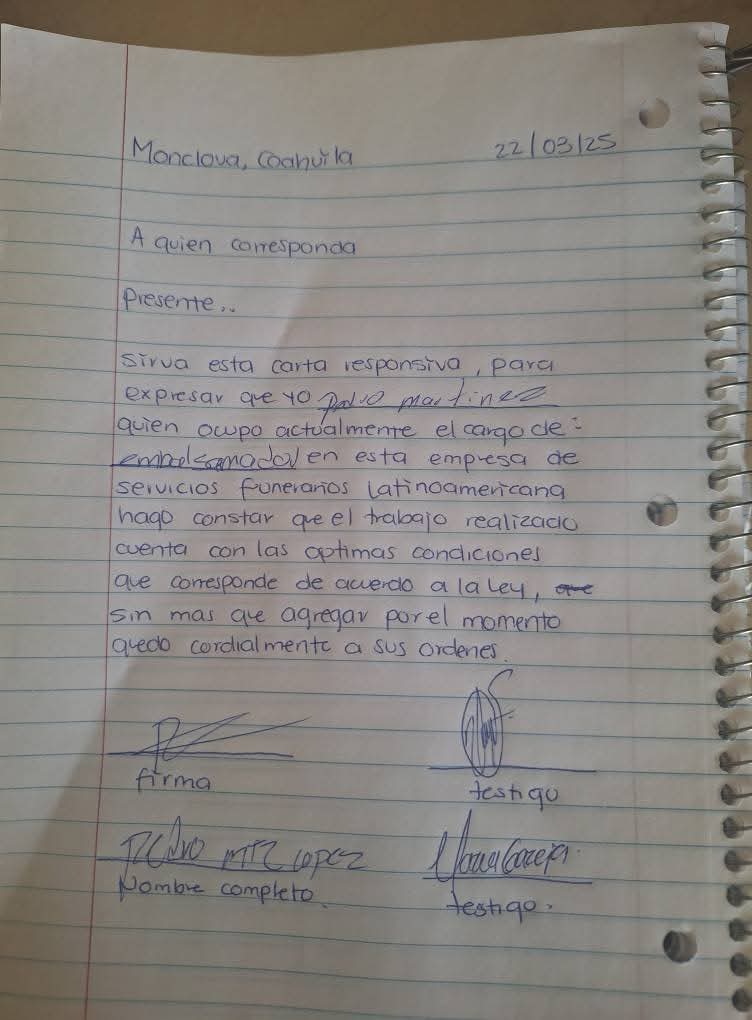 Monclova, Coahuila 22/03/25
A quien corresponda
Presente..
Sirva esta carta responsiva, para
expresar que yo Pedro martinez
quien ocupo actualmente el cargo de:
embalsamador en esta empresa de
servicios funerarios Latinoamericana
hago constar que el trabajo realizado
cuenta con las optimas condiciones
que corresponde de acuerdo a la Ley, que
sin mas que agregar por el momento
quedo cordialmente a sus ordenes.
firma testigo
Pedro MTZ LOPEZ Garcia
Nombre completo. testigo.